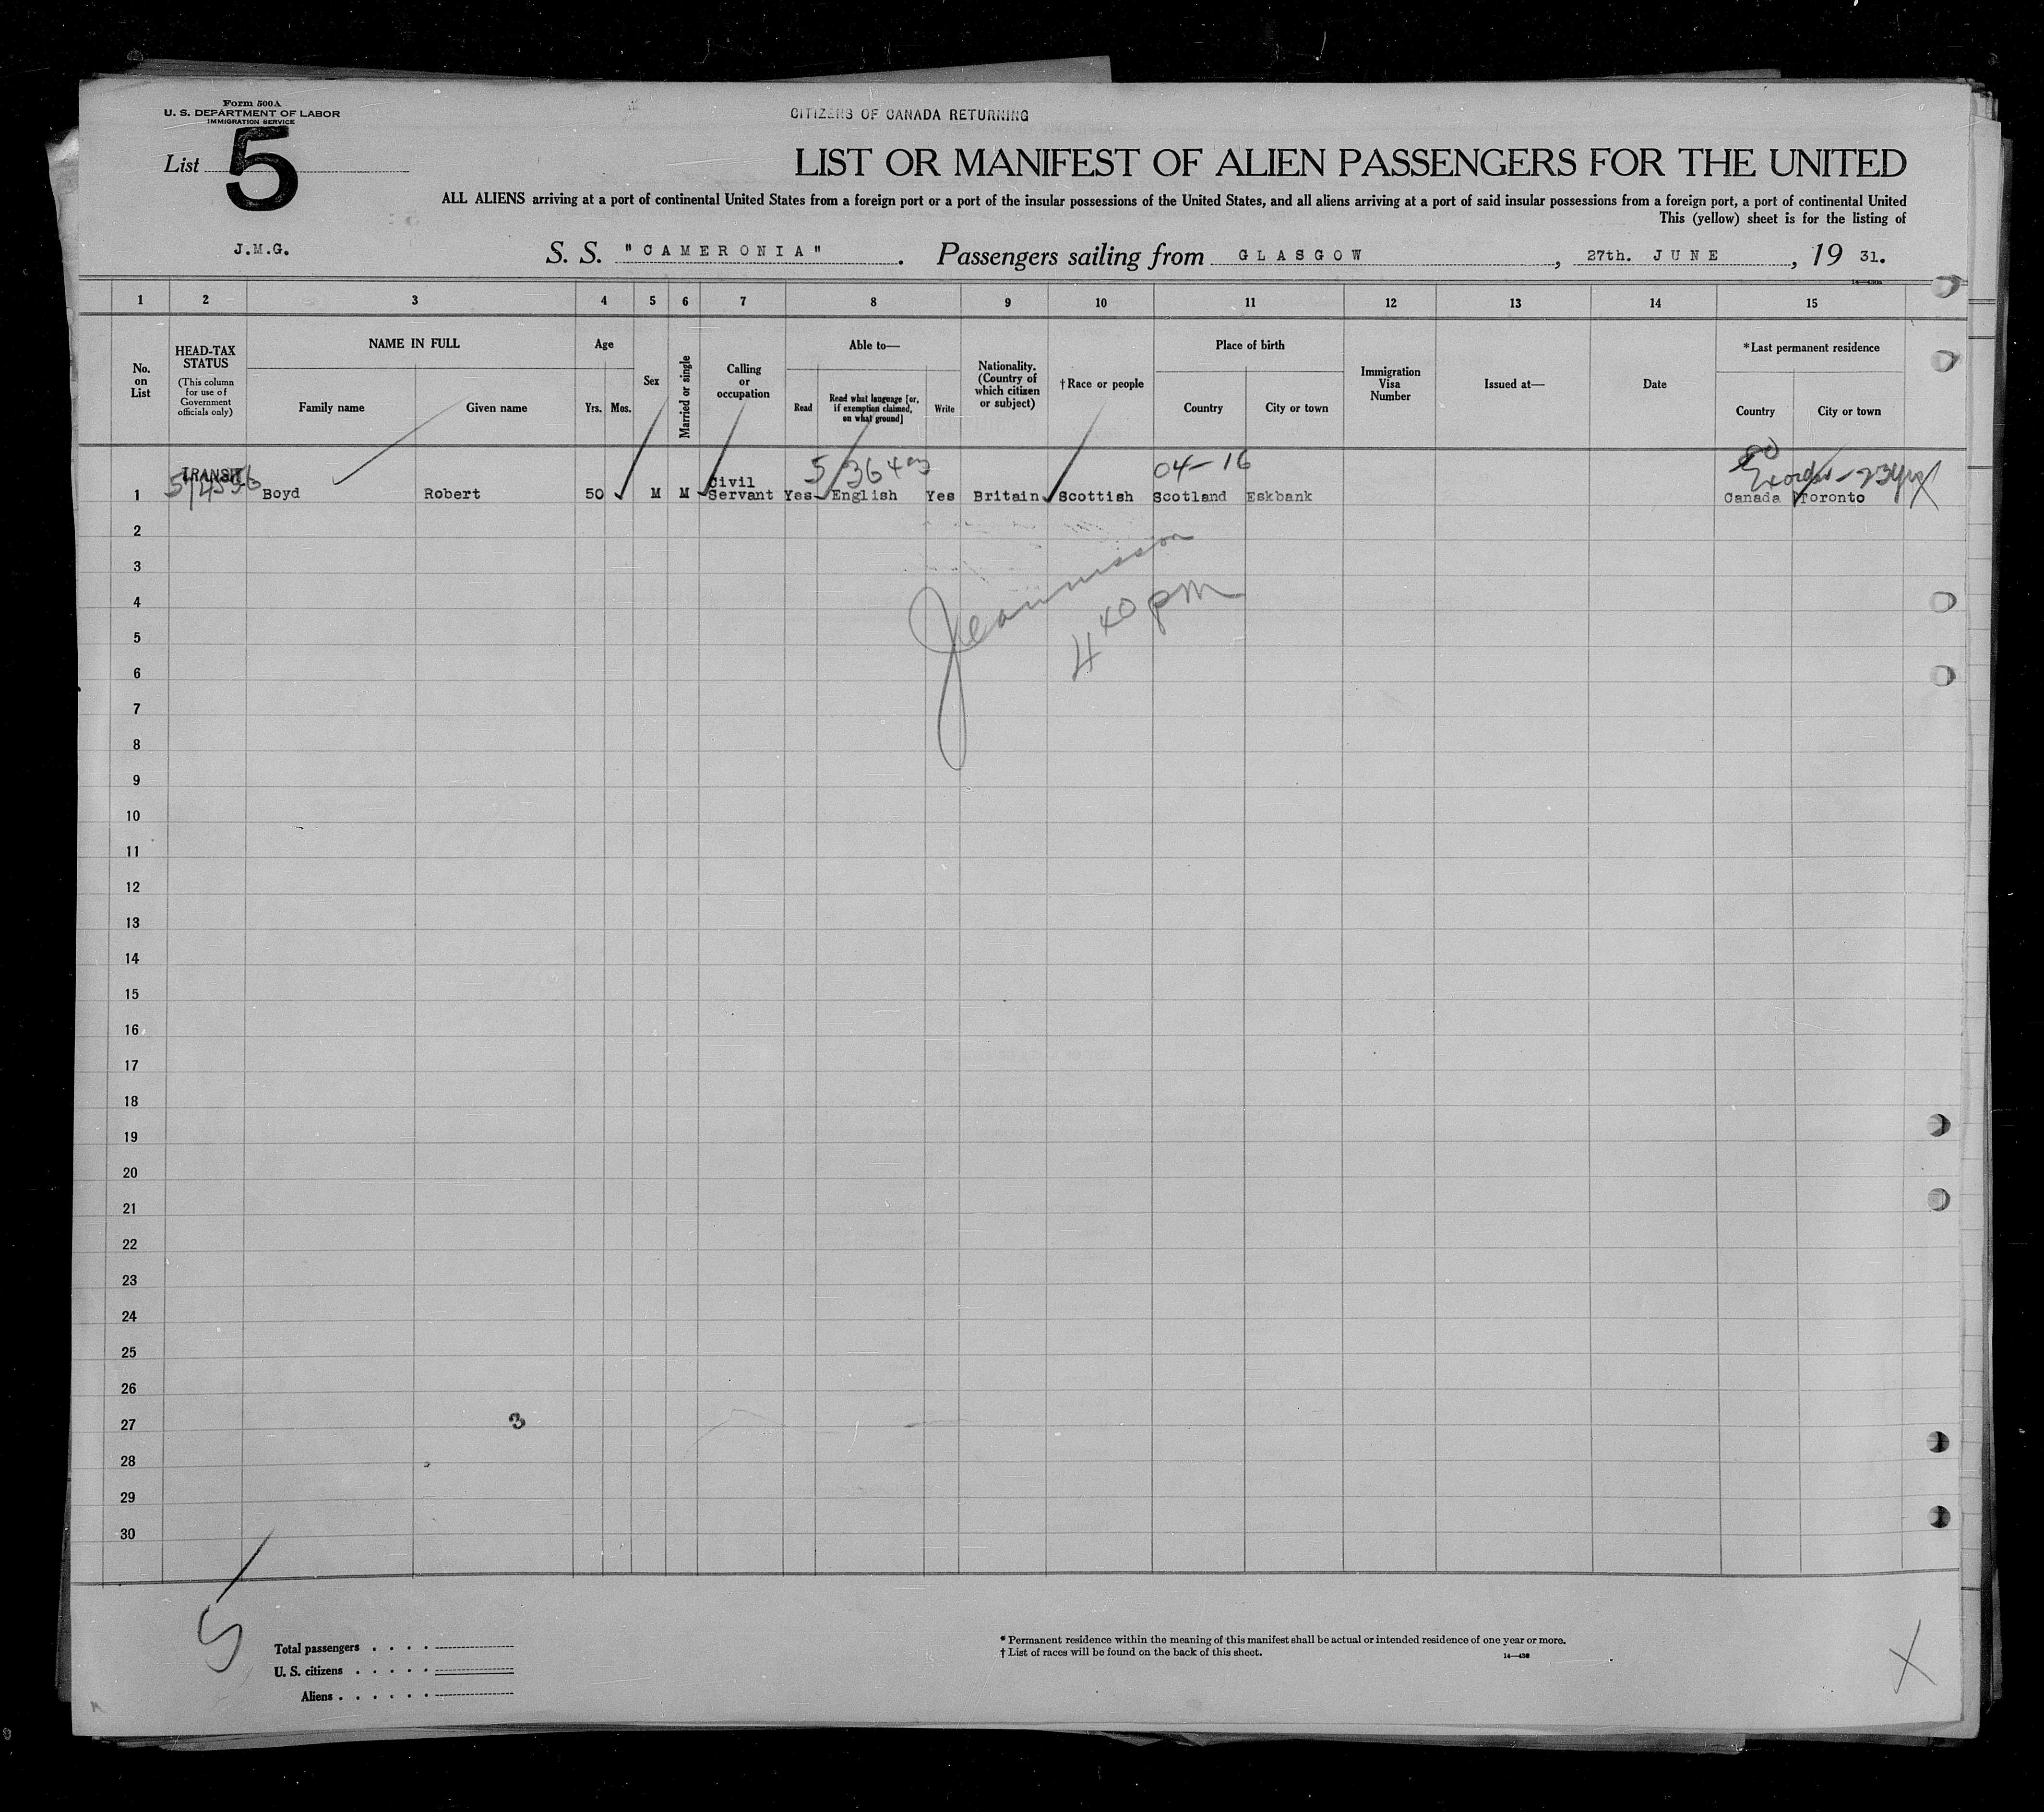 Form 500A
U. S. DEPARTMENT OF LABOR
IMMIGRATION SERVICE
CITIZENS OF CANADA RETURNING
List 5
LIST OR MANIFEST OF ALIEN PASSENGERS FOR THE UNITED
ALL ALIENS arriving at a port of continental United States from a foreign port or a port of the insular possessions of the United States, and all aliens arriving at a port of said insular possessions from a foreign port, a port of continental United
This (yellow) sheet is for the listing of
J.M.G. S. S. "CAMERONIA". Passengers sailing from GLASGOW, 27th. JUNE, 19 31.
1 2 3 4 5 6 7 8 9 10 11 12 13 14 15
No. on List
HEAD-TAX STATUS (This column for use of Government officials only)
NAME IN FULL
Family name Given name
Age
Yrs. Mos.
Sex
Married or single
Calling or occupation
Able to—
Read Read what language [or, if exemption claimed, on what ground] Write
Nationality. (Country of which citizen or subject)
†Race or people
Place of birth
Country City or town
Immigration Visa Number
Issued at—
Date
*Last permanent residence
Country City or town
TRANSIT 5 36 04-16
1 Boyd Robert 50 M M Civil Servant Yes English Yes Britain Scottish Scotland Eskbank Canada Toronto
2
3
4
4 40 pm
5
6
7
8
9
10
11
12
13
14
15
16
17
18
19
20
21
22
23
24
25
26
27 3
28
29
30
5
Total passengers . . . .
U. S. citizens . . . . .
Aliens . . . . . .
* Permanent residence within the meaning of this manifest shall be actual or intended residence of one year or more.
† List of races will be found on the back of this sheet.
14—430
X